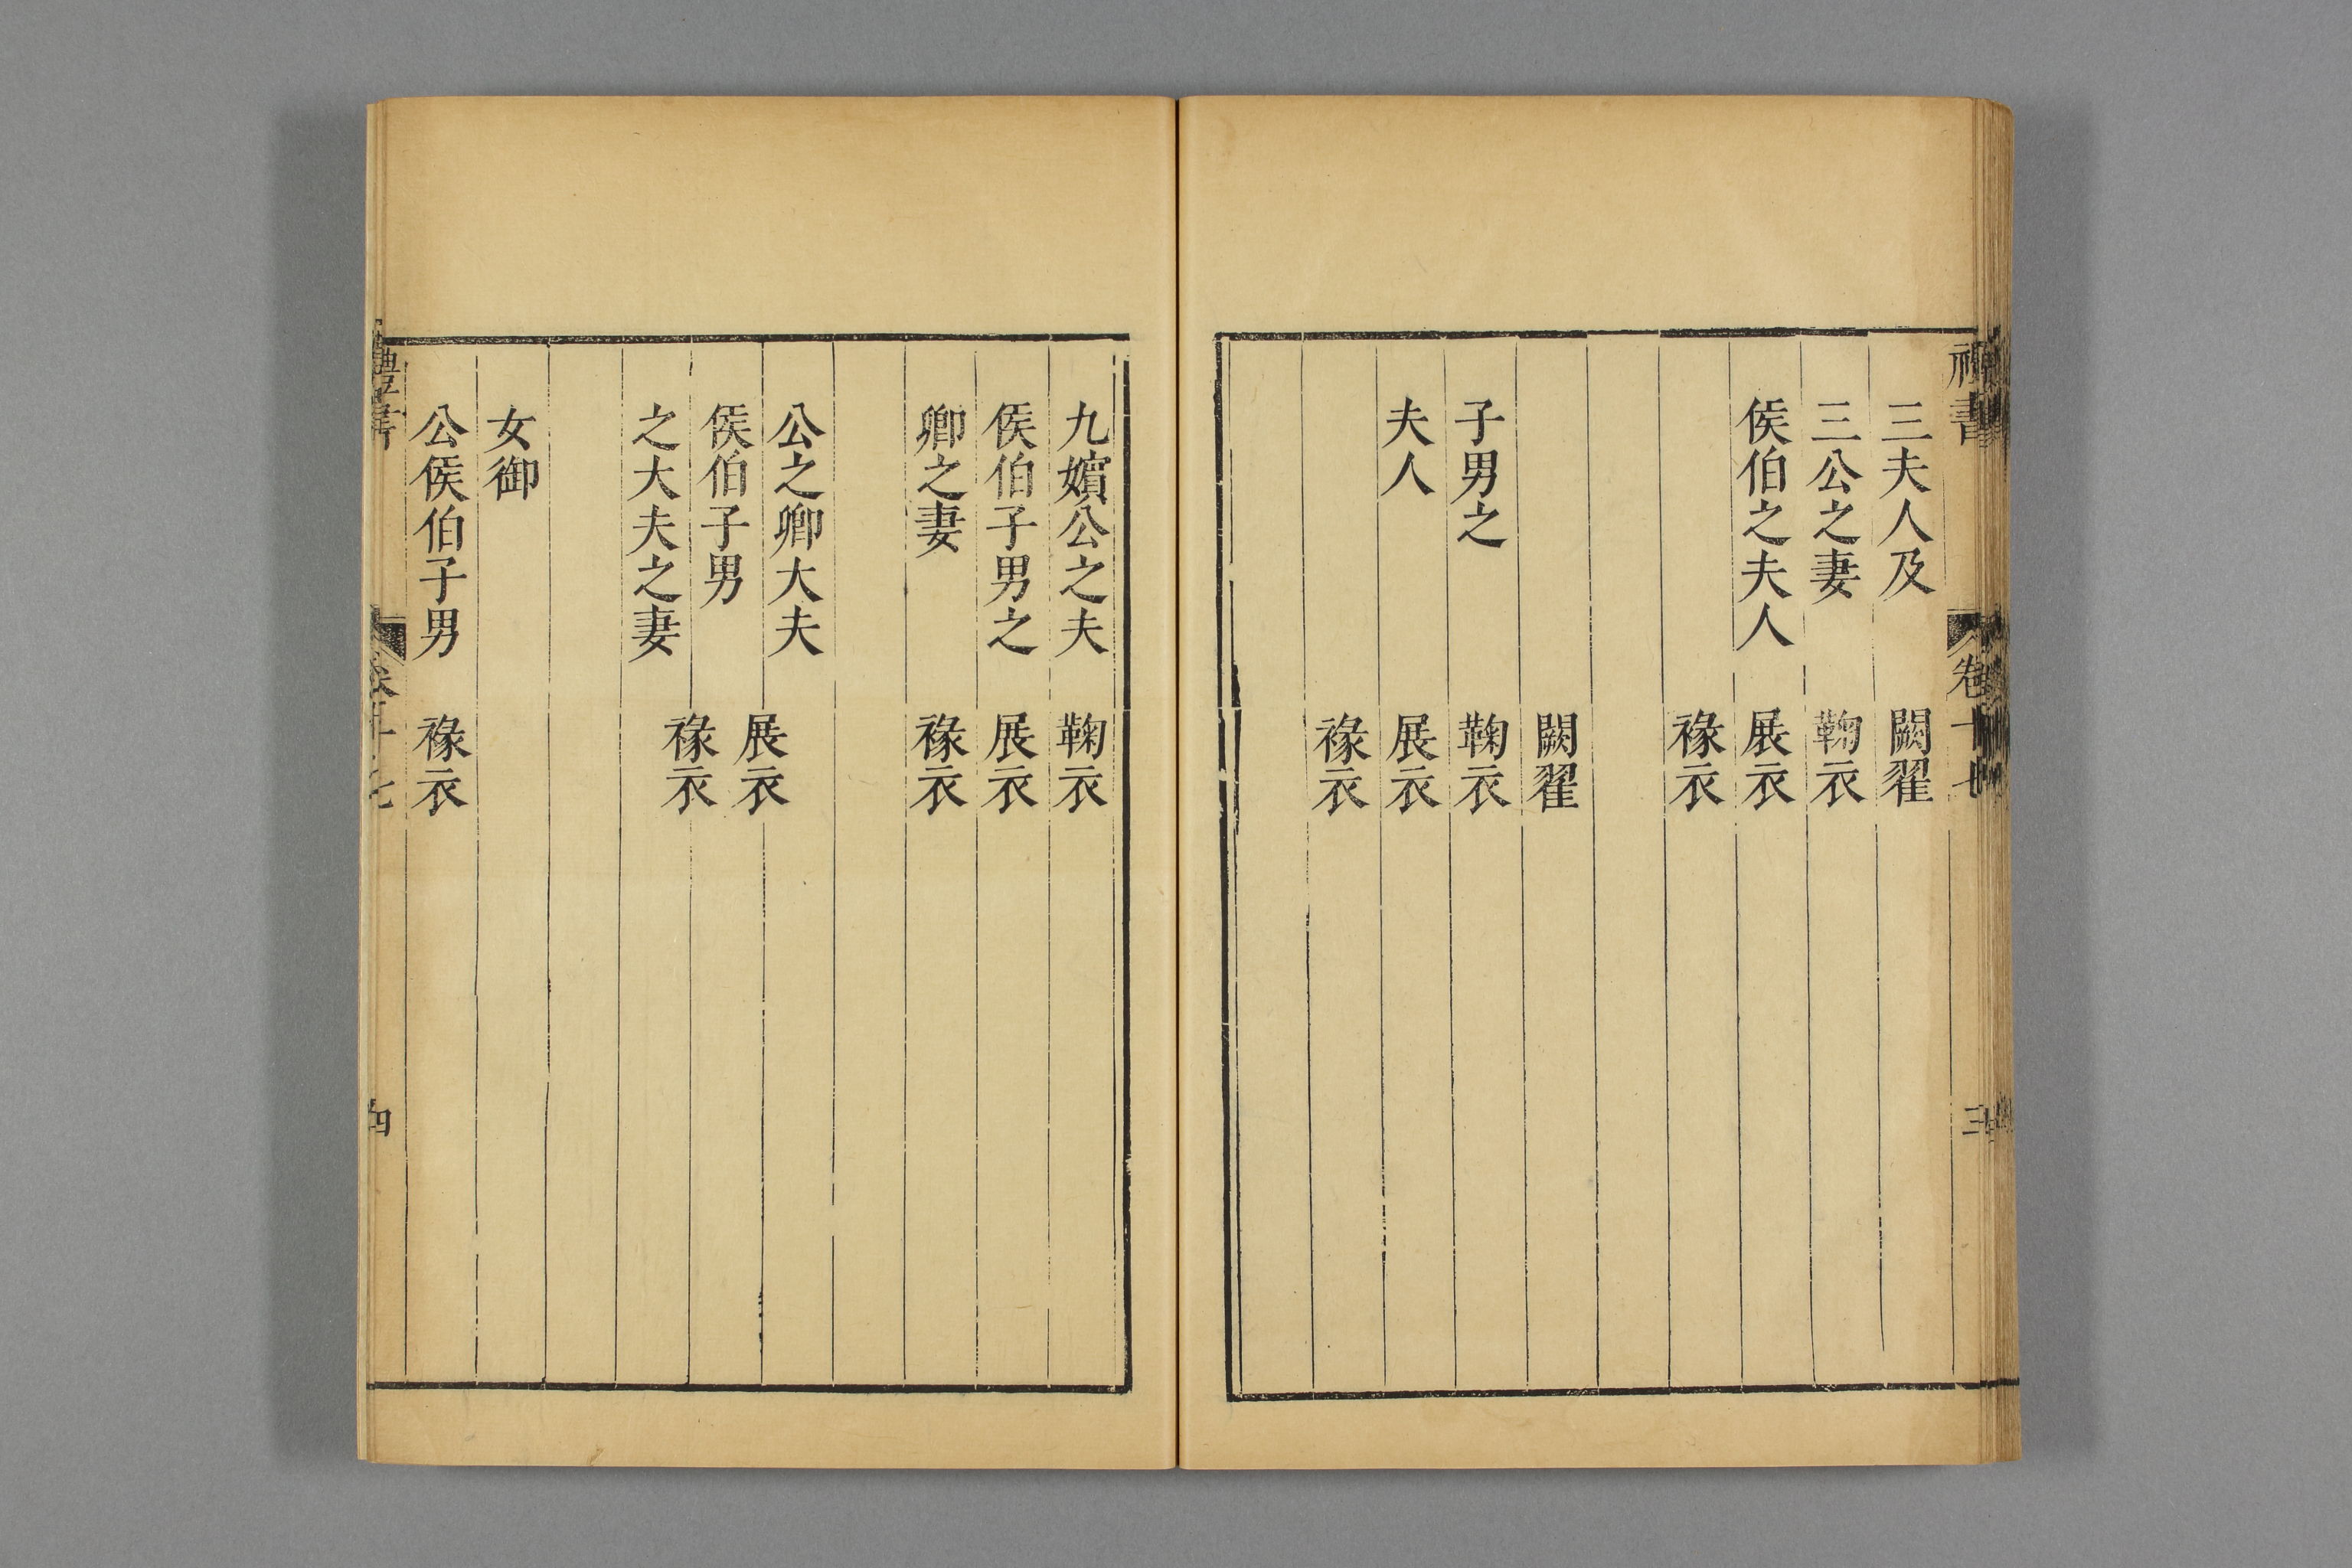 禮書
卷十七
三
三夫人及 闕翟
三公之妻 鞠衣
侯伯之夫人 展衣
褖衣
闕翟
子男之 鞠衣
夫人 展衣
褖衣
九嬪公之夫 鞠衣
侯伯子男之 展衣
卿之妻 褖衣
公之卿大夫
展衣
侯伯子男
褖衣
之大夫之妻
女御
公侯伯子男 褖衣
禮書
卷十七
四